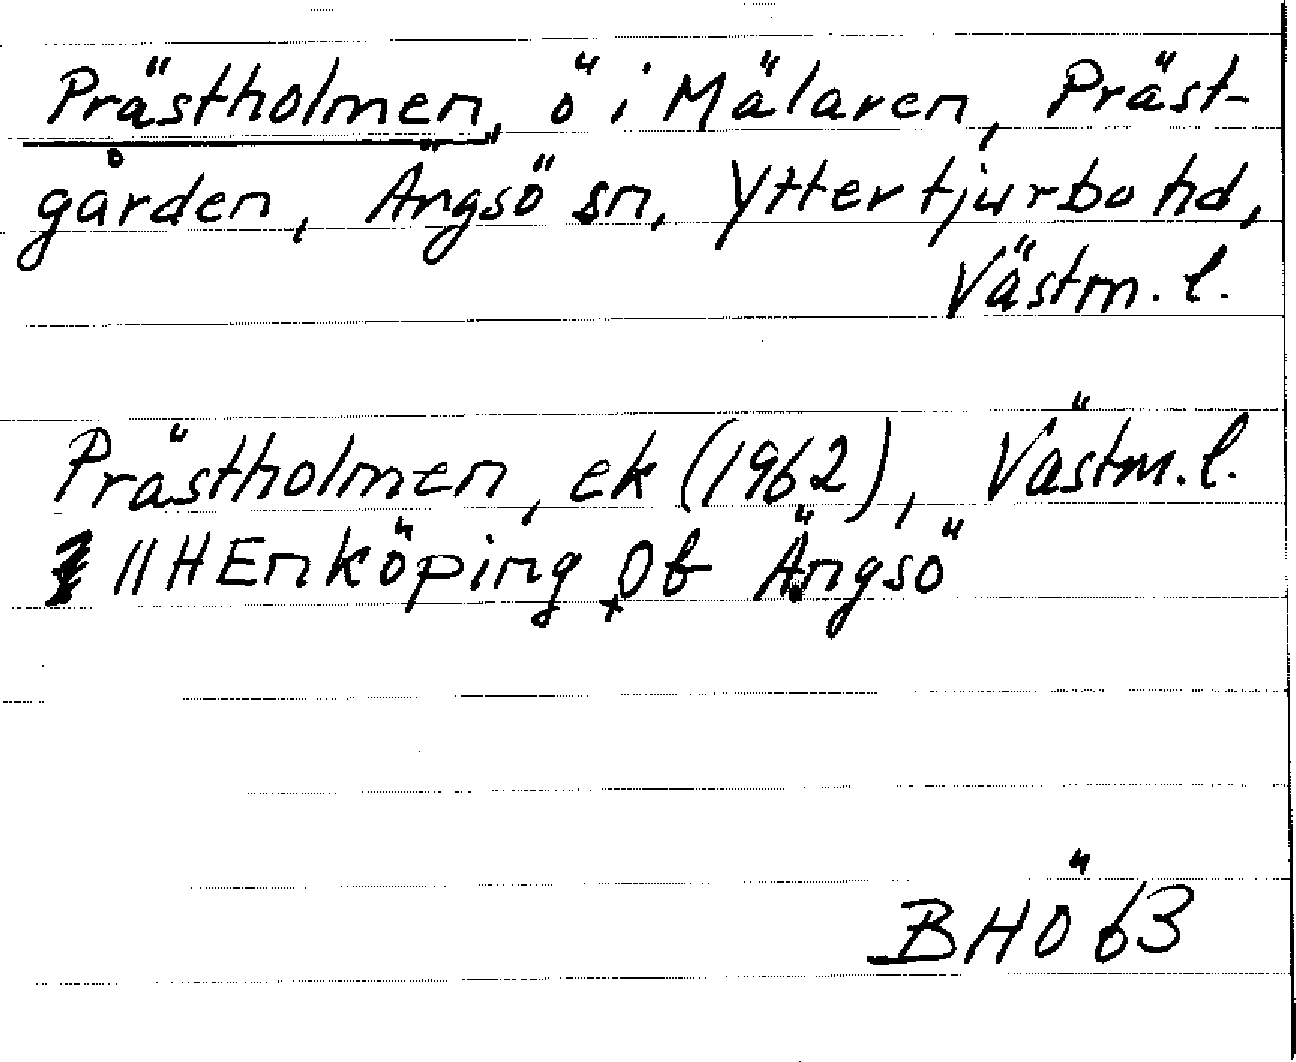 Prästholmen, ö i Mälaren, Präst-
gården, Ängsö sn, Yttertjurbo hd,
Västm. l.
Prästholmen, ek (1962), Västm. l.
11H Enköping 0b Ängsö
BHÖ 63